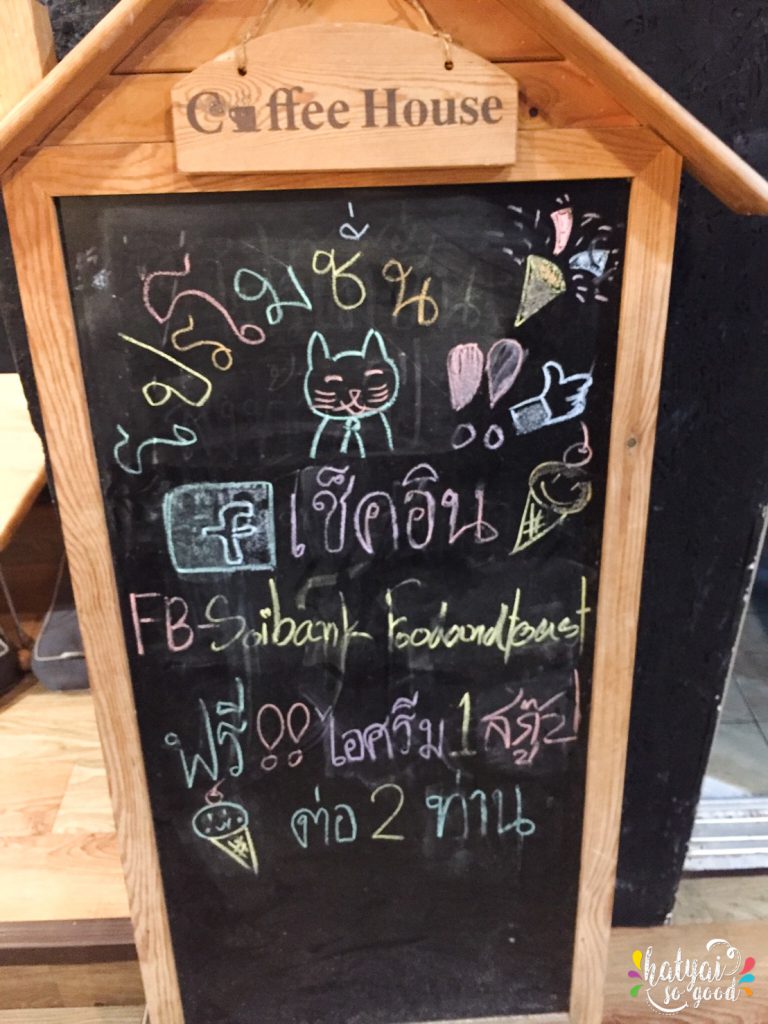 Coffee House
โปรโมชั่น !!
f เช็คอิน
FB-Soibank Foodandtoast
ฟรี!! ไอศรีม 1 สกู๊ป
ต่อ 2 ท่าน
hatyai
so good